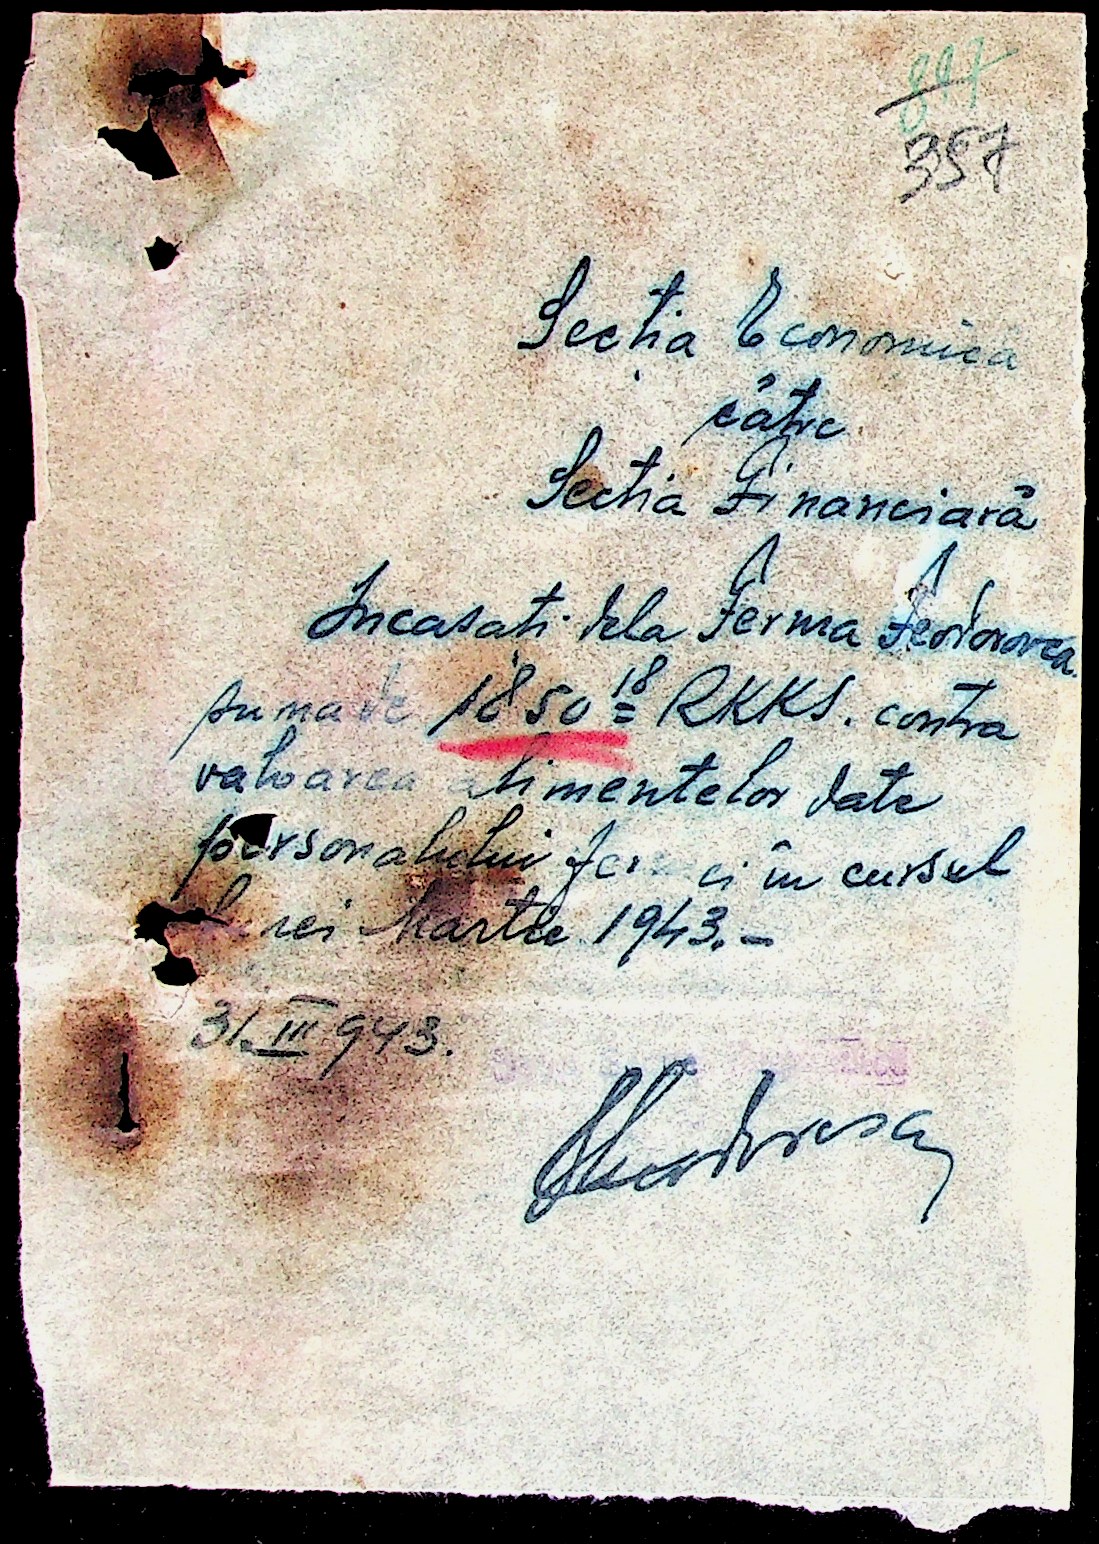 897
357
Secția Economica
către
Secția Financiară
Incasați dela Ferma Feodorovca
suma de 1850 18 RKKS. contra
valoarea alimentelor date
personalului fermei în cursul
lunei Martie 1943.-
31.III 943.